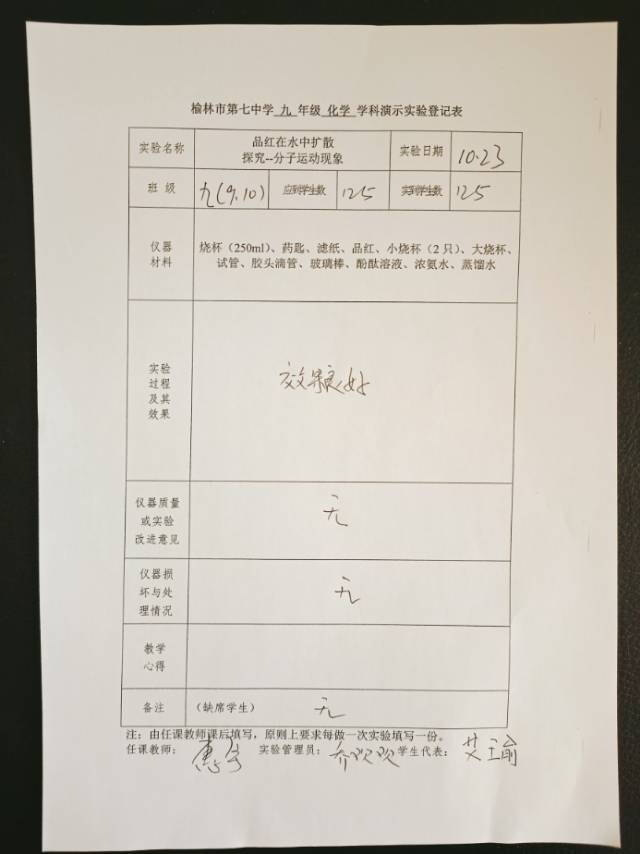 榆林市第七中学 九 年级 化学 学科演示实验登记表
实验名称
品红在水中扩散
探究--分子运动现象
实验日期
10·23
班 级
九(9.10)
应到学生数
125
实到学生数
125
仪器
材料
烧杯(250ml)、药匙、滤纸、品红、小烧杯(2只)、大烧杯、
试管、胶头滴管、玻璃棒、酚酞溶液、浓氨水、蒸馏水
实验
过程
及其
效果
效果良好
仪器质量
或实验
改进意见
无
仪器损
坏与处
理情况
无
教学
心得
备注
(缺席学生)
无
注:由任课教师课后填写,原则上要求每做一次实验填写一份。
任课教师: 实验管理员: 乔欢欢 学生代表: